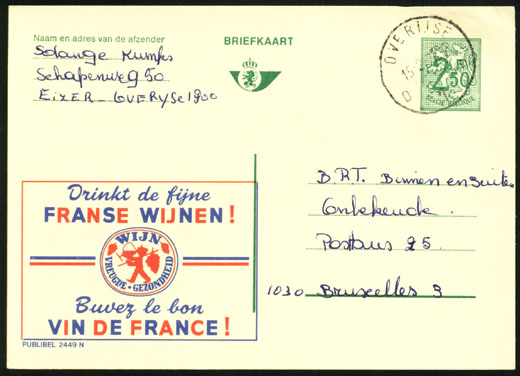 Naam en adres van de afzender
BRIEFKAART
Solange Kumps
Schapenweg 50
EIZER - OVERYSe 1900
OVERIJSE
15
D
2F50
BELGIE-BELGIQUE
Drinkt de fijne
FRANSE WIJNEN !
WIJN
VREUGDE - GEZONDHEID
Buvez le bon
VIN DE FRANCE !
PUBLIBEL 2449 N
B.R.T. Binnen en Buiten
Onbekende.
Postbus 25.
1030 Bruxelles 3